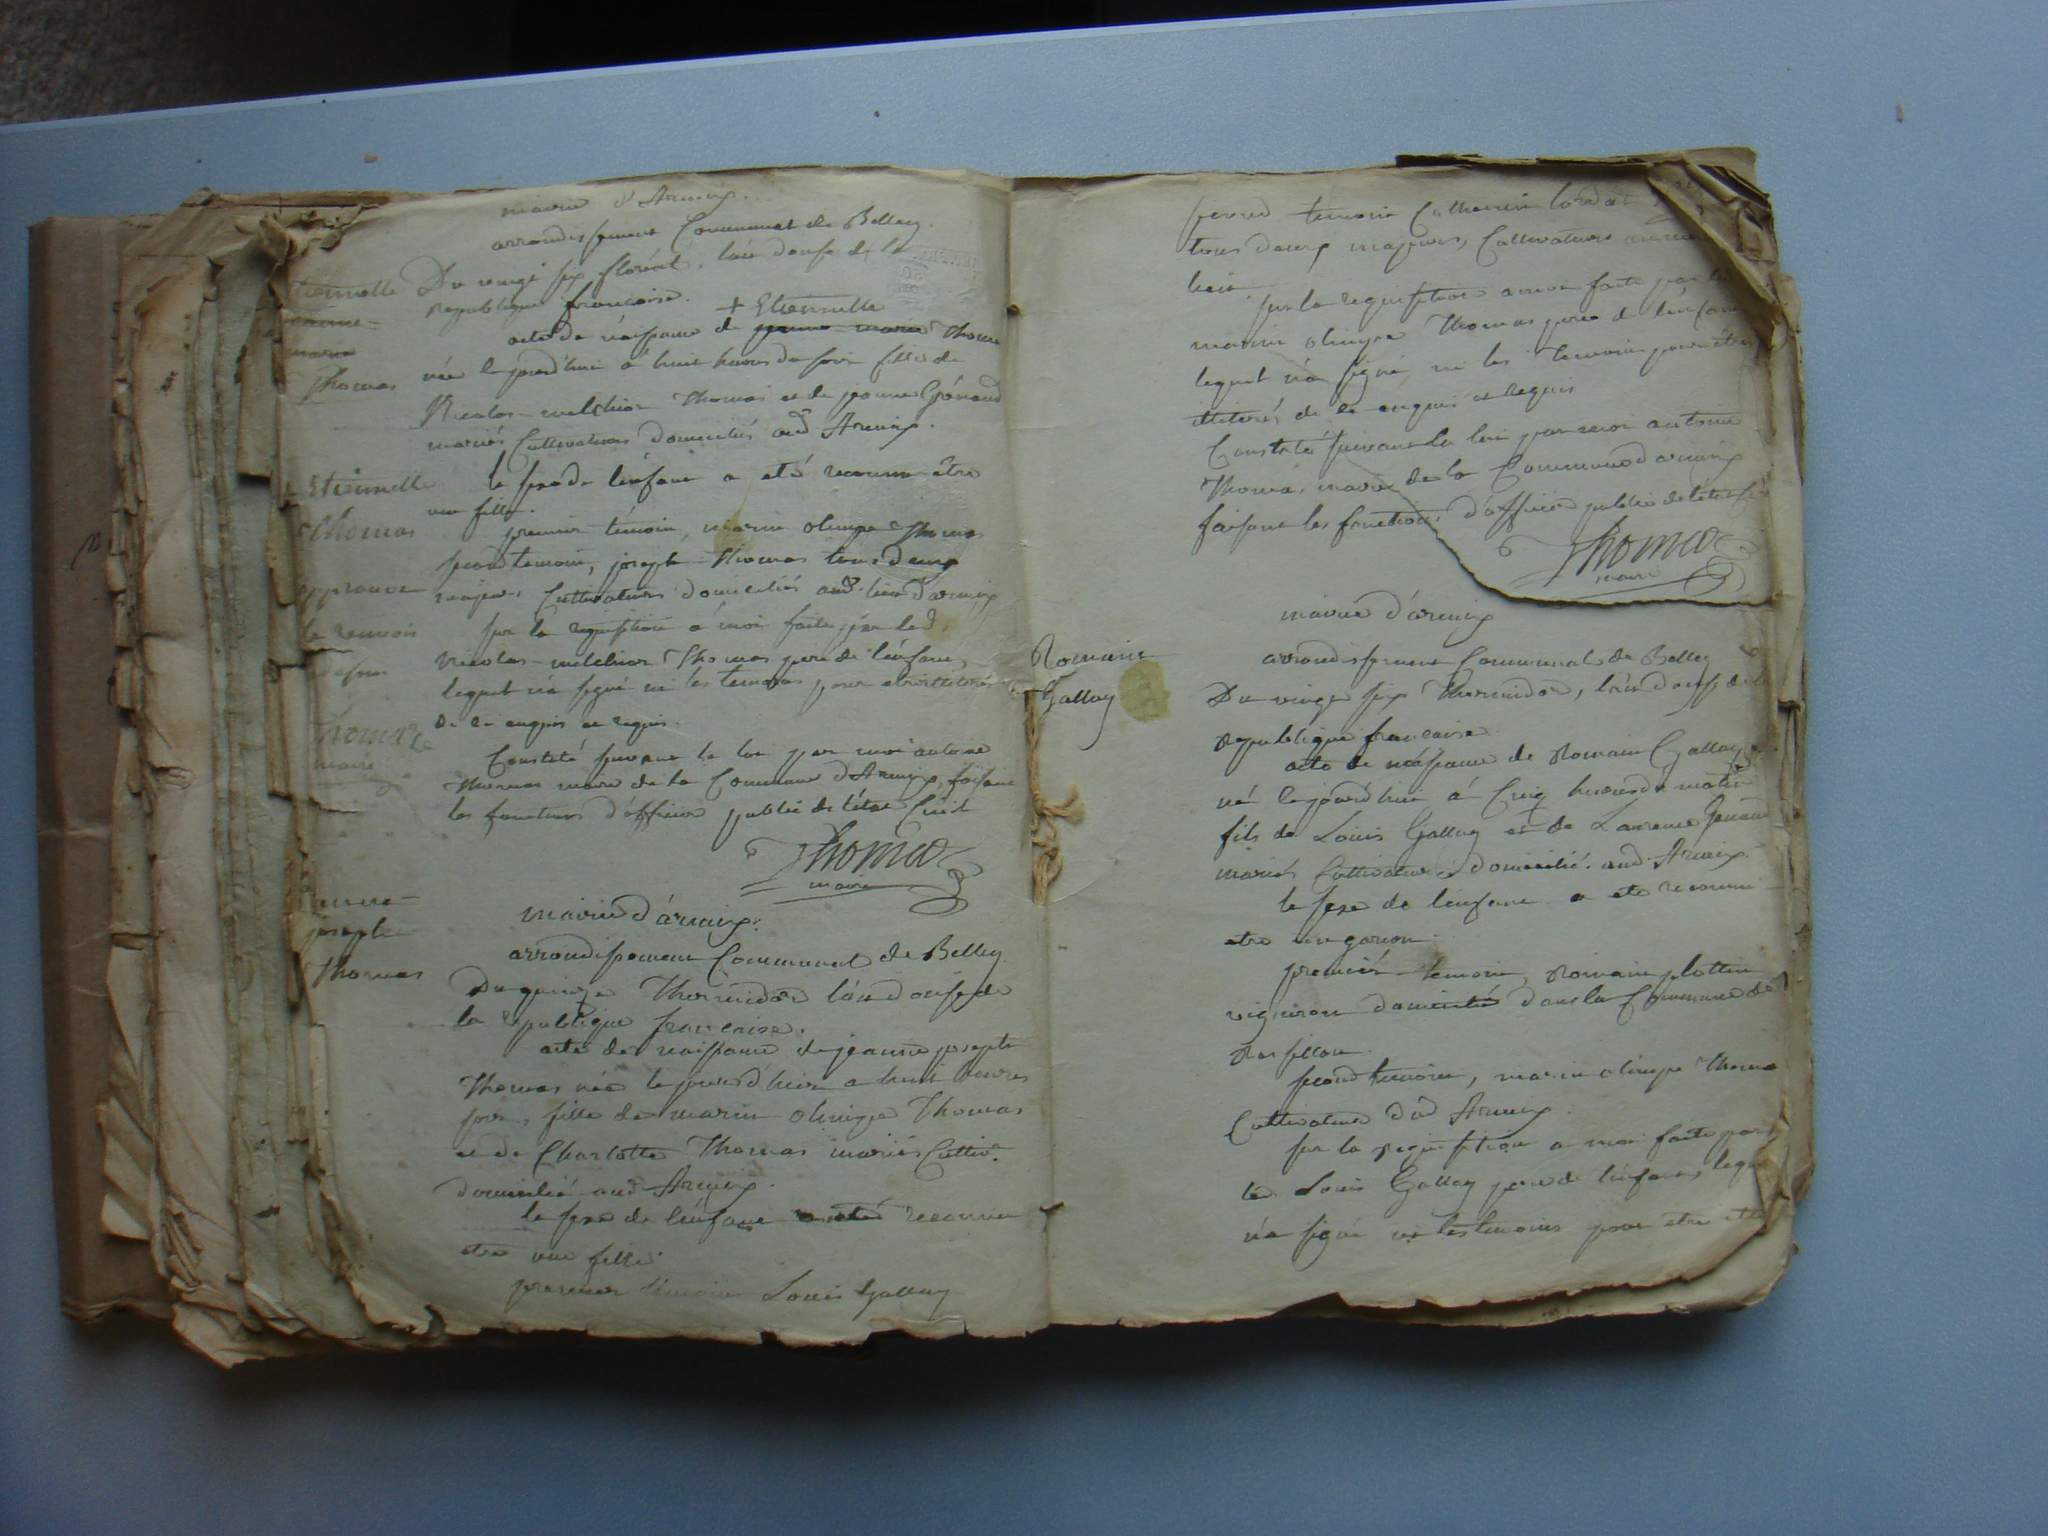 mairie d'Armix.
arrondissement Communal de Belley.
Etiennette
Du vingt six floréal, l'an douse de la
republique francaise.
jeanne-
marie
Thomas
+ Etiennette
acte de naissance de jeanne marie Thomas
née le jourd'hui à huit heures du soir fille de
Nicolas-melchior Thomas et de jeanne Génand
mariés Cultivateurs domiciliés aud. Armix.
+ Etiennette
Thomas
approuvé
le renvoi
Thomas
maire
le sexe de l'enfant a eté reconnu être
une fille.
premier témoin, marin olimpe Thomas
second temoin, joseph Thomas tous deux
majeurs Cultivateurs domiciliés aud. lieu d'armix
sur la requisition à moi faite par led.
nicolas-melchior Thomas pere de l'enfant,
lequel n'a signé ni les temoins pour etre illiterés
de ce enquis et requis.
Constaté suivant la loi par moi antoine
Thomas maire de la Commune d'Armix, faisant
les fonctions d'officier public de l'état Civil
Thomas
maire
jeanne-
joseph
Thomas
mairie d'armix.
arrondissement Communal de Belley.
Du quinze Thermidor l'an douse de
la republique francaise.
acte de naissance de jeanne josephe
Thomas née le jourd'hui a huit heures
soir, fille de marin olimpe Thomas
et de Charlotte Thomas mariés Cultiv.
domicilié aud. Armix.
le sexe de l'enfant a eté reconnu
etre une fille.
premier temoin Louis Gallay
second temoin Catherin
tous deux majeurs, Cultivateurs
lieu.
sur la requisition a moi faite par
marin olimpe Thomas pere de l'enfant
lequel n'a signé, ni les temoins pour être
illiterés de ce enquis et requis
Constaté suivant la loi par moi antoine
Thomas, maire de la Commune d'armix
faisant les fonctions d'officier public de l'état
Thomas
maire
Romain
Gallay
mairie d'armix
arrondissement Communal de Belley
Du vingt six Thermidor, l'an douse de la
republique francaise.
acte de naissance de Romain Gallay
né le jourd'hui à Cinq heures du matin
fils de Louis Gallay et de Laurence Genand
mariés Cultivateurs domicilié. aud. Armix.
le sexe de l'enfant a eté reconnu
etre un garcon.
premier temoin, Romain plottin
vigneron domicilié dans la Commune de
Rossillon.
second temoin, marin olimpe Thomas
Cultivateur dud Armix.
sur la requisition a moi faite par
led. Louis Gallay pere de l'enfant, lequel
n'a signé ni les temoins pour etre